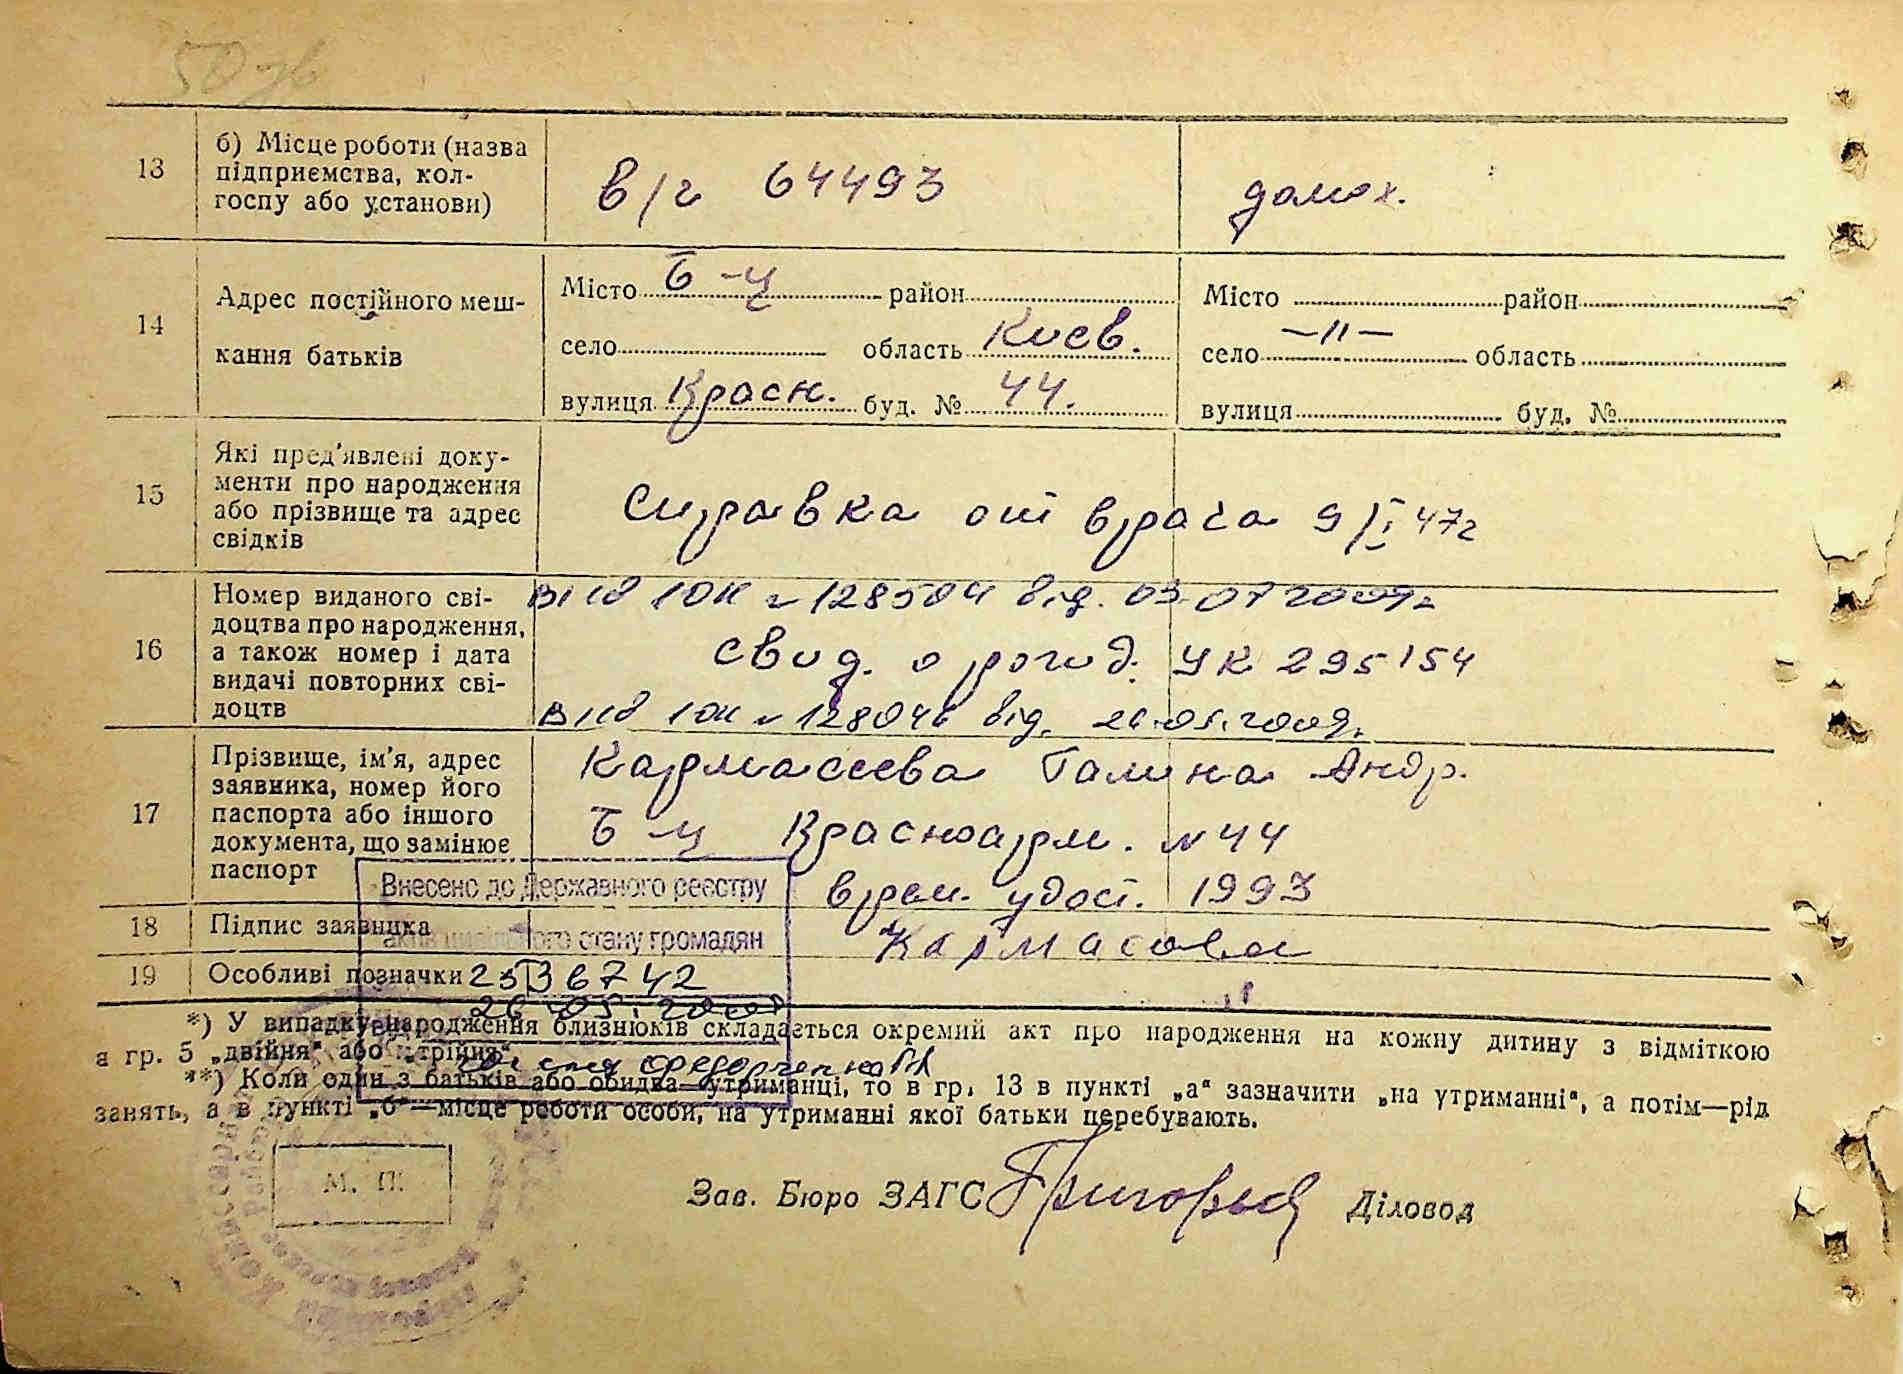 13
б) Місце роботи (назва
підприємства, кол-
госпу або установи)
в/ч 64493
домох.
14
Адрес постійного меш-
кання батьків
Місто Б-Ц район
село область Киев.
вулиця Красн. буд. № 44.
Місто район
село —〃— область
вулиця буд. №
15
Які пред'явлені доку-
менти про народження
або прізвище та адрес
свідків
Справка от врача 9/I 47г
16
Номер виданого сві-
доцтва про народження,
а також номер і дата
видачі повторних сві-
доцтв
від. 03.07.2009
Свид. о рожд. УК 295154
від. 26.05.2009.
17
Прізвище, ім'я, адрес
заявника, номер його
паспорта або іншого
документа, що замінює
паспорт
Галина Андр.
Б-Ц Красноарм. №44
врем. удост. 1993
Внесено до Державного реєстру
актів цивільного стану громадян
18
Підпис заявника
Кармасова
19
Особливі позначки
26.05.2009
*) У випадку народження близнюків складається окремий акт про народження на кожну дитину з відміткою
в гр. 5 „двійня“ або „трійня“.
**) Коли один з батьків або обидва—утриманці, то в гр. 13 в пункті „а“ зазначити „на утриманні“, а потім—рід
занять, а в пункті „б“—місце роботи особи, на утриманні якої батьки перебувають.
М. П.
Зав. Бюро ЗАГС
Діловод